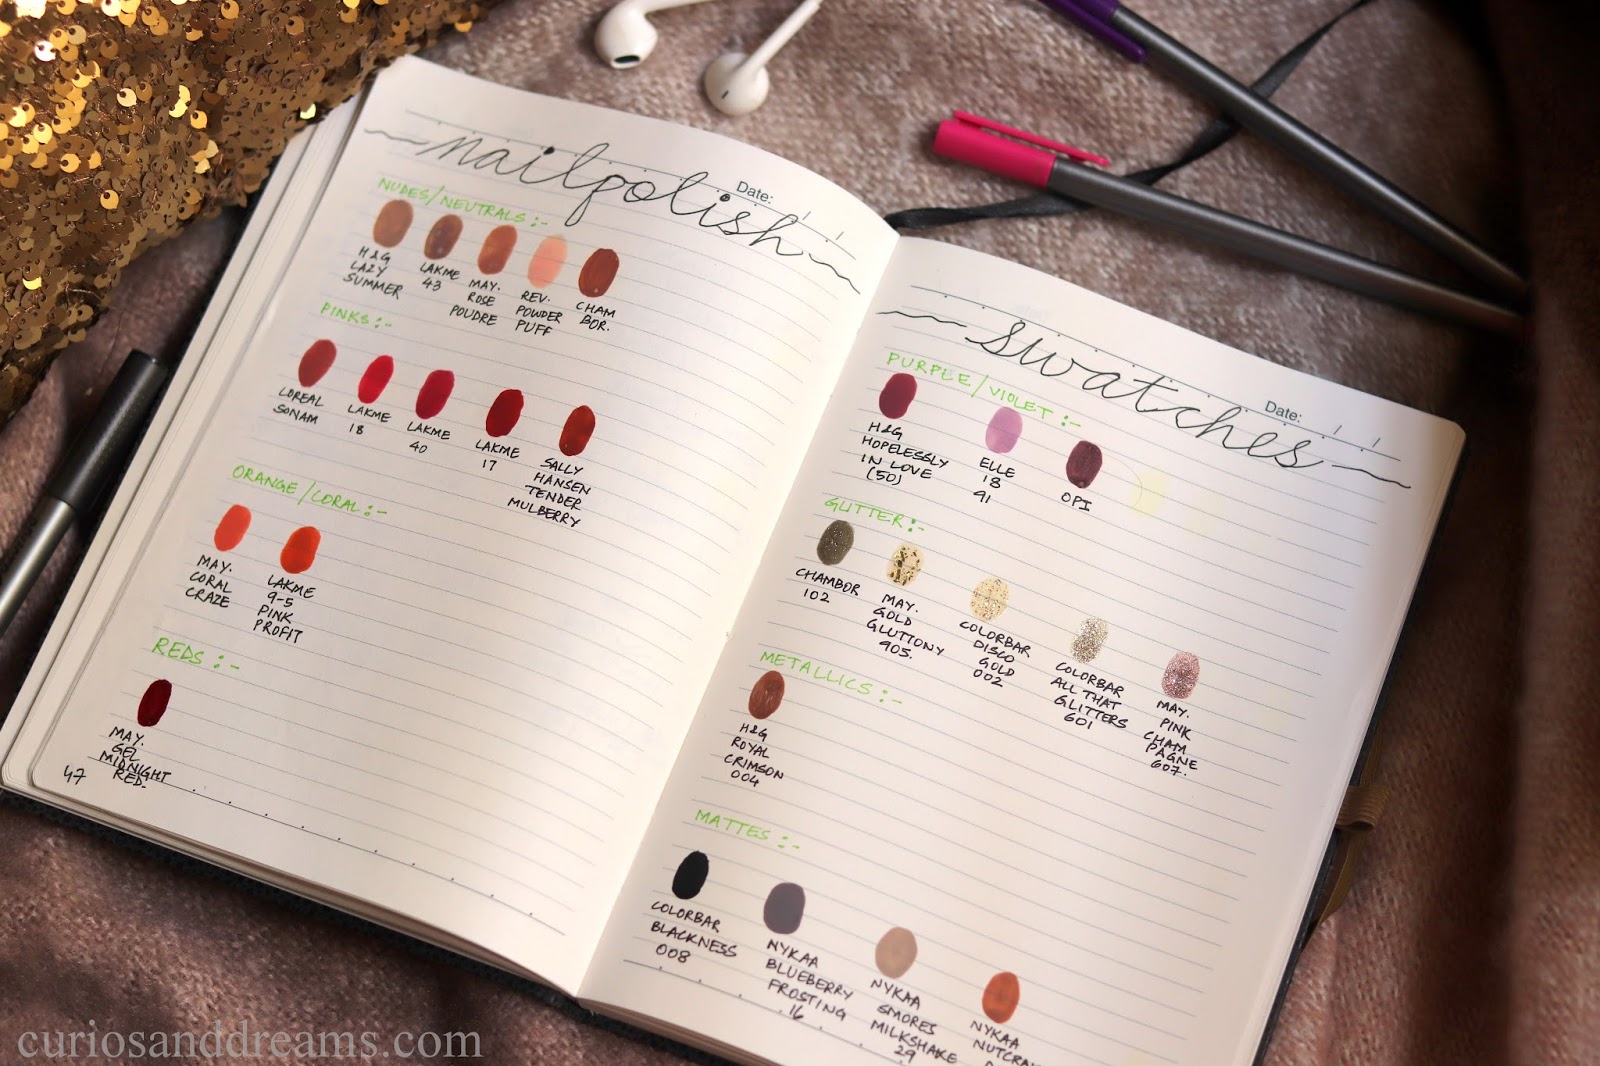 nailpolish
Date:
NUDES/NEUTRALS:-
H&G
LAZY
SUMMER
LAKME
43
MAY.
ROSE
POUDRE
REV.
POWDER
PUFF
CHAM
BOR.
PINKS:-
LOREAL
SONAM
LAKME
18
LAKME
40
LAKME
17
SALLY
HANSEN
TENDER
MULBERRY
ORANGE/CORAL:-
MAY.
CORAL
CRAZE
LAKME
9-5
PINK
PROFIT
REDS:-
MAY.
GEL
MIDNIGHT
RED.
47
swatches
Date:
PURPLE/VIOLET:-
H&G
HOPELESSLY
IN LOVE
(50)
ELLE
18
91
OPI
GLITTER:-
CHAMBOR
102
MAY.
GOLD
GLUTTONY
905.
COLORBAR
DISCO
GOLD
002
COLORBAR
ALL THAT
GLITTERS
601
MAY.
PINK
CHAM
PAGNE
607.
METALLICS:-
H&G
ROYAL
CRIMSON
004
MATTES:-
COLORBAR
BLACKNESS
008
NYKAA
BLUEBERRY
FROSTING
16
NYKAA
SMORES
MILKSHAKE
29
NYKAA
curiosanddreams.com